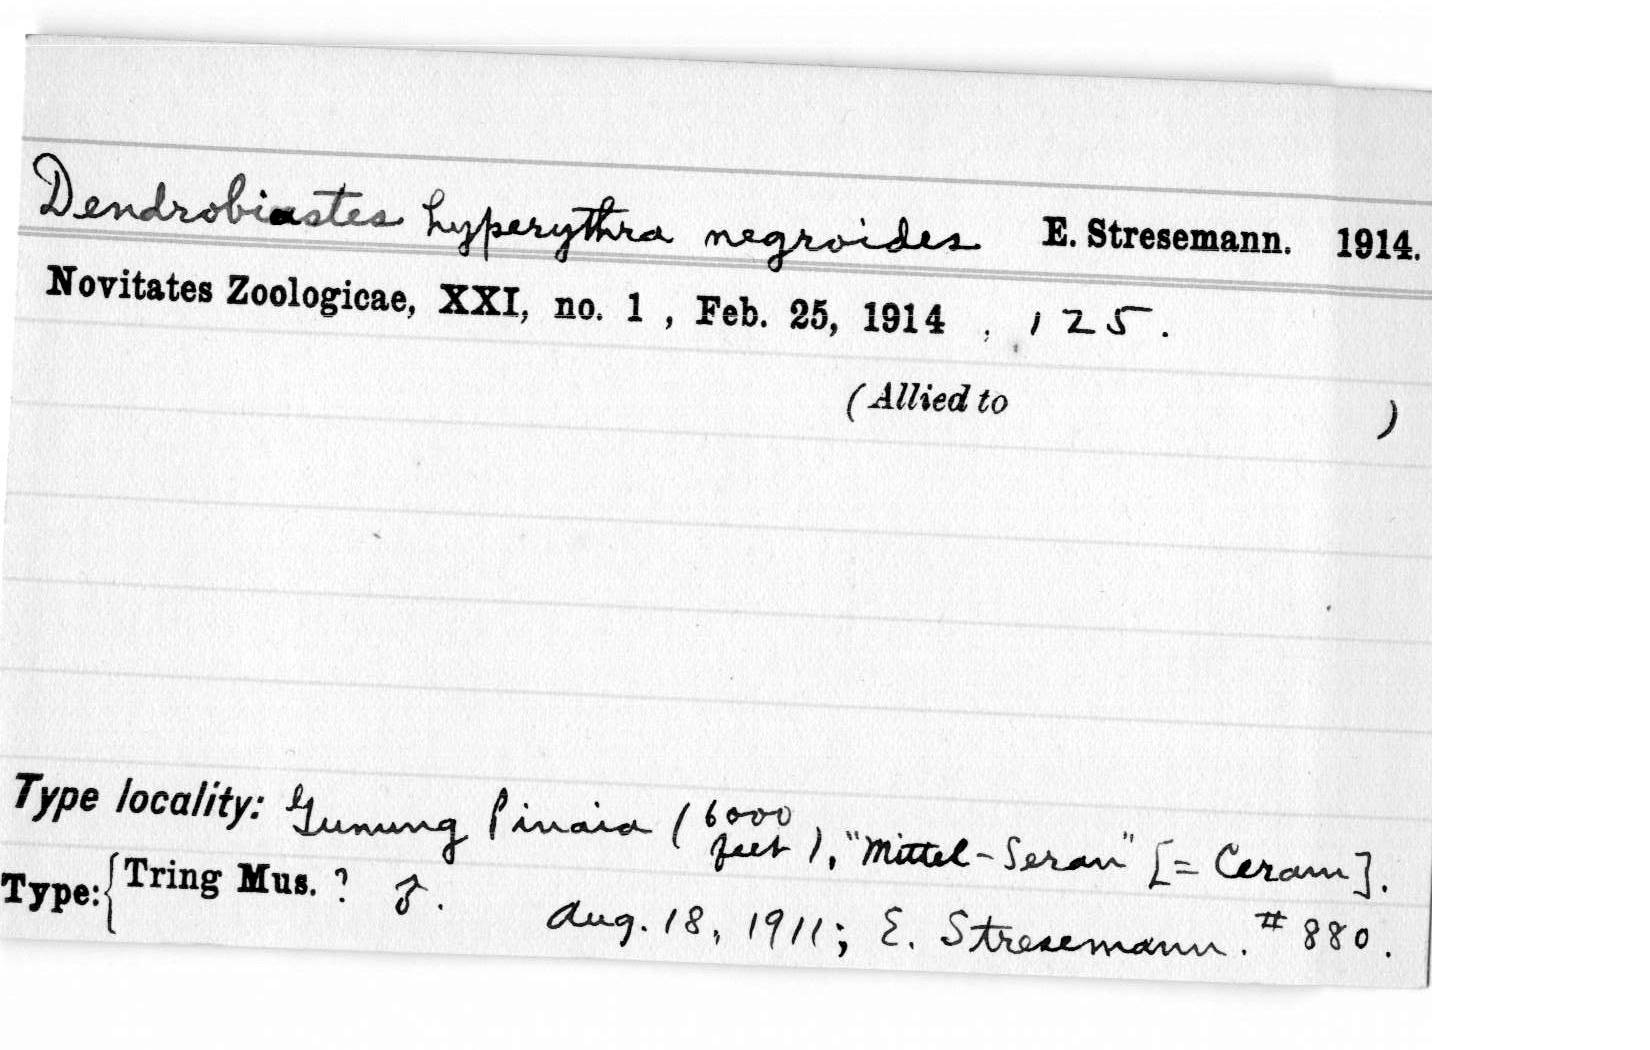 Dendrobiastes hyperythra negroides E. Stresemann. 1914.
Novitates Zoologicae, XXI, no. 1, Feb. 25, 1914, 125.
(Allied to )
Type locality: Gunung Pinaia (6000 feet), "Mittel-Seran" [= Ceram].
Type: {Tring Mus. ? ♂.
Aug. 18, 1911; E. Stresemann. # 880.